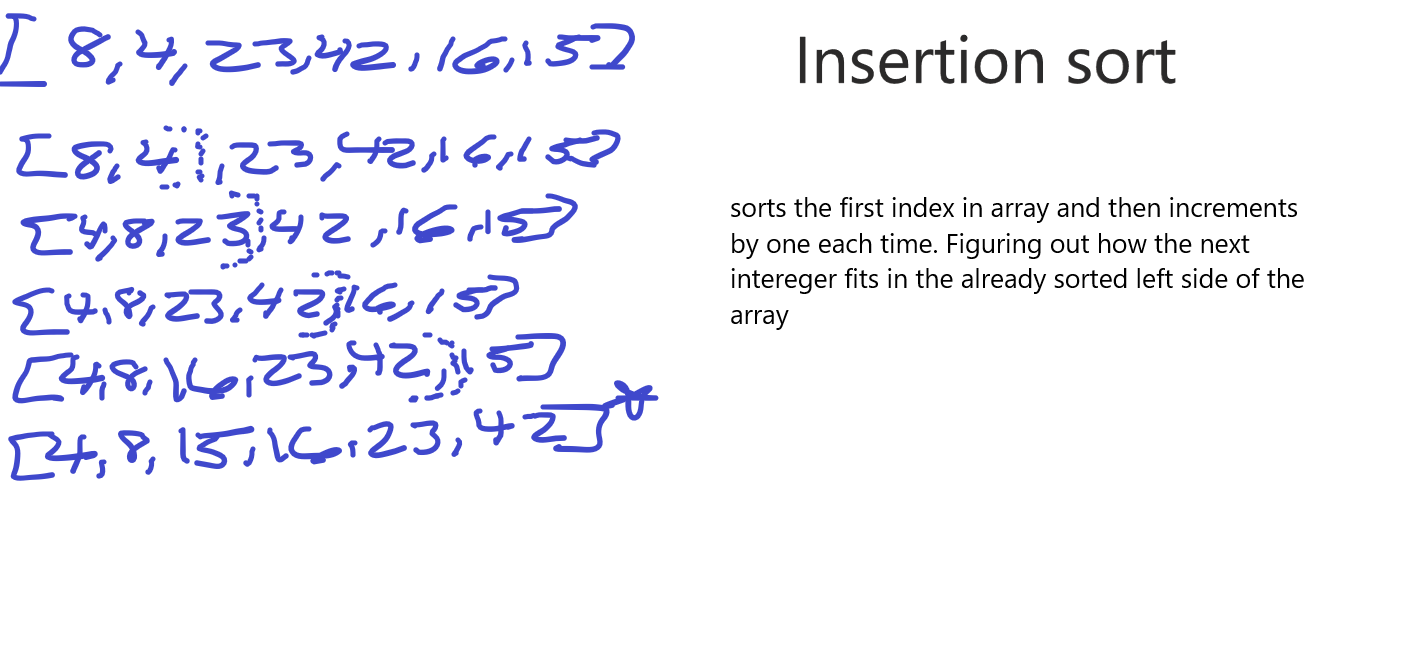 [ 8, 4, 23, 42, 16, 15]
Insertion sort
[8, 4, 23, 42, 16, 15]
[4, 8, 23, 42, 16, 15]
[4, 8, 23, 42, 16, 15]
[4, 8, 16, 23, 42, 15]
[4, 8, 15, 16, 23, 42]
sorts the first index in array and then increments
by one each time. Figuring out how the next
intereger fits in the already sorted left side of the
array